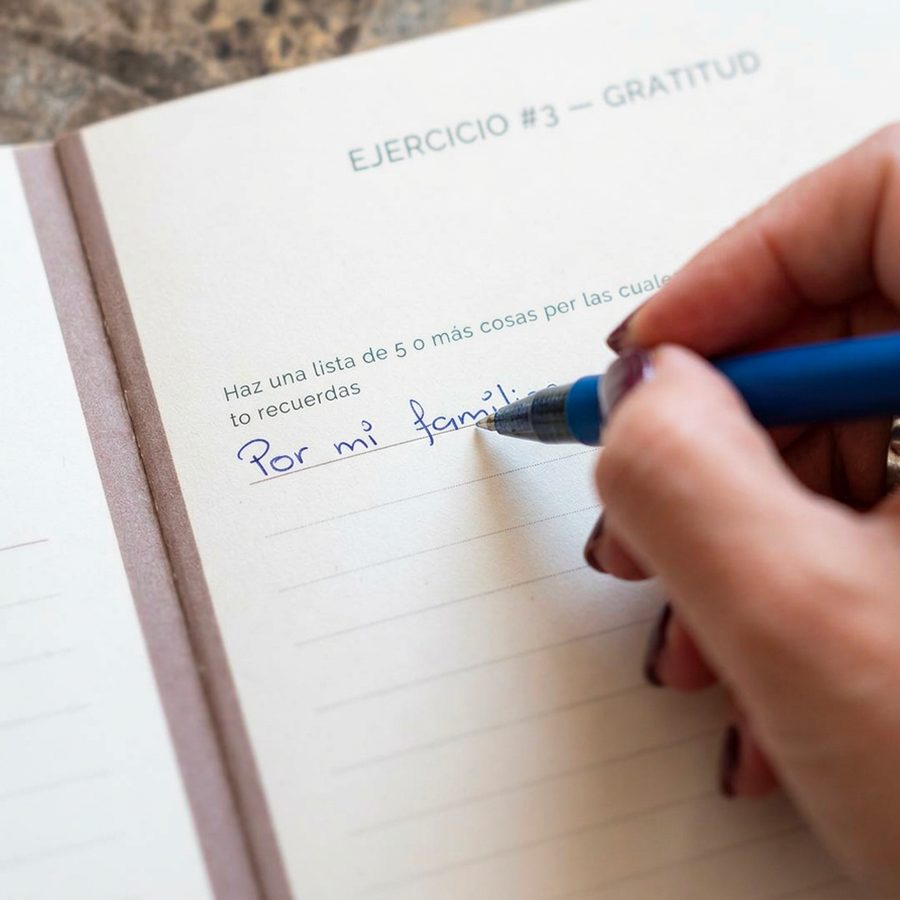 EJERCICIO #3 — GRATITUD
Haz una lista de 5 o más cosas per las
to recuerdas
Por mi familia